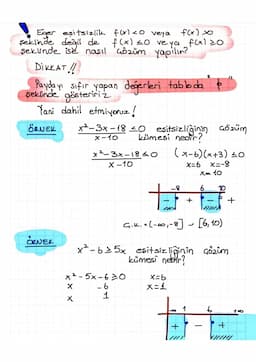 ! Eğer eşitsizlik f(x) < 0 veya f(x) > 0
şeklinde değil de f(x) ≤ 0 veya f(x) ≥ 0
şeklinde ise nasıl çözüm yapılır?
DİKKAT !!
Paydayı sıfır yapan değerleri tabloda
şeklinde gösteririz
Yani dahil etmiyoruz!
ÖRNEK x²-3x-18 ≤ 0 eşitsizliğinin çözüm
x-10 kümesi nedir?
x²-3x-18 ≤ 0 (x-6)(x+3) ≤ 0
x-10 x=6 x=-8
x=10
-8 6 10
- + - +
Ç.K. = (-∞,-8] ∪ [6,10)
ÖRNEK
x²-6 ≥ 5x eşitsizliğinin çözüm
kümesi nedir?
x²-5x-6 ≥ 0 x=6
x -6 x=1
x 1
-∞ 1 6 +∞
+ - +